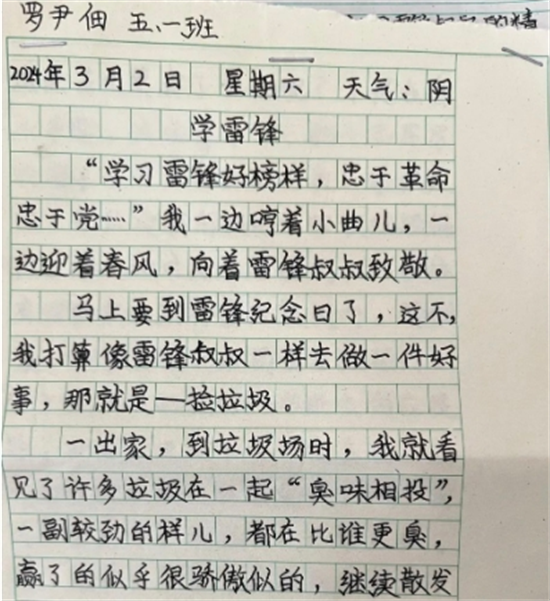 罗尹佃 五、一班
的精
2024年3月2日 星期六 天气：阴
学雷锋
“学习雷锋好榜样，忠于革命
忠于党……”我一边哼着小曲儿，一
边迎着春风，向着雷锋叔叔致敬。
马上要到雷锋纪念日了，这不，
我打算像雷锋叔叔一样去做一件好
事，那就是—捡垃圾。
一出家，到垃圾场时，我就看
见了许多垃圾在一起“臭味相投”，
一副较劲的样儿，都在比谁更臭，
赢了的似乎很骄傲似的，继续散发